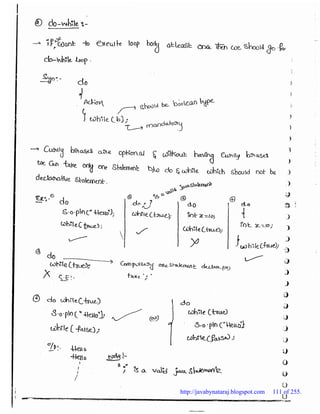 ② do-while :-
→ if we want to execute loop body atleast one then we should go for
do-while loop.
Syn:-
do
{
Action
should be boolean type
} while (b);
→ mandatory
→ Curly braces are optional & without having curly braces
we can take only one statement b/w do & while which should not be
declarative statement.
Ex:- ① do
S.o.pln("Hello");
while(true);
② do ;
while(true);
';' is valid java statement
③ do
int x=10;
while(true);
④ do
{
int x=10;
} while(true);
⑤ do
while(true);
X C.E:-
Compulsory one statement declare, or
take ';'
⑥ do while(true)
S.o.pln("Hello");
while(false);
(or)
do
while(true)
S.o.pln("Hello");
while(false);
o/p:- Hello
Hello
Note:-
';' is a valid java statement.
http://javabynataraj.blogspot.com 111 of 255.